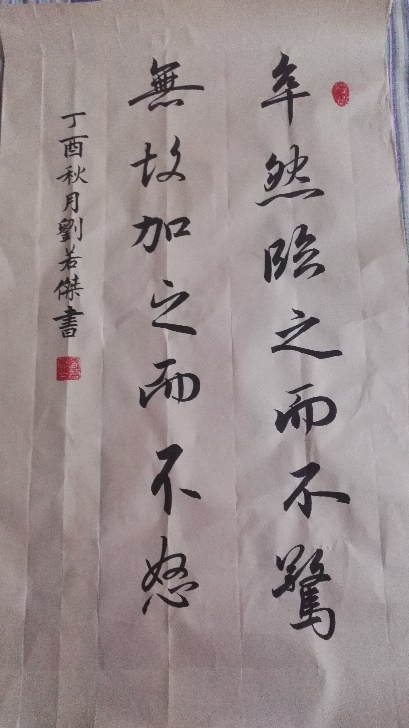 卒然臨之而不驚
無故加之而不怒
丁酉秋月劉若傑書